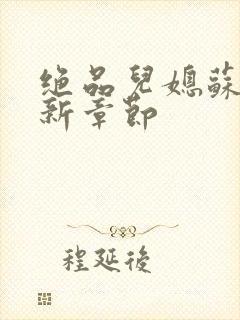 绝品兒媳蘇
新章節
程延後